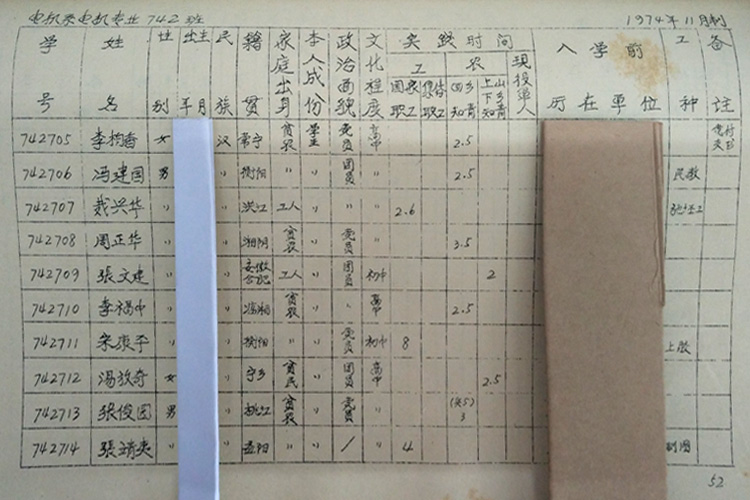 电机系电机专业742班 1974年11月制
学号 姓名 性别 出生年月 民族 籍贯 家庭出身 本人成份 政治面貌 文化程度 实践时间 工 国家职工 集体职工 农 回乡知青 上山下乡知青 现役军人 入学前所在单位 工种 备注
742705 李梅香 女 汉 常宁 贫农 学生 党员 高中 2.5
742706 冯建国 男 〃 衡阳 〃 〃 团员 〃 2.5 民教
742707 戴兴华 〃 〃 洪江 工人 〃 〃 〃 2.6
742708 周正华 〃 〃 湘阴 贫农 〃 党员 〃 3.5
742709 张文建 〃 〃 安徽合肥 工人 〃 团员 初中 2
742710 李福中 〃 〃 临湘 贫农 〃 〃 高中 2.5
742711 宋康平 〃 〃 衡阳 〃 〃 党员 初中 8
742712 汤放奇 女 〃 宁乡 贫民 〃 团员 高中 2.5
742713 张俊国 男 〃 桃江 贫农 〃 党员 〃 3
742714 张靖夷 〃 〃 益阳 〃 〃 / 〃 4 制图
52